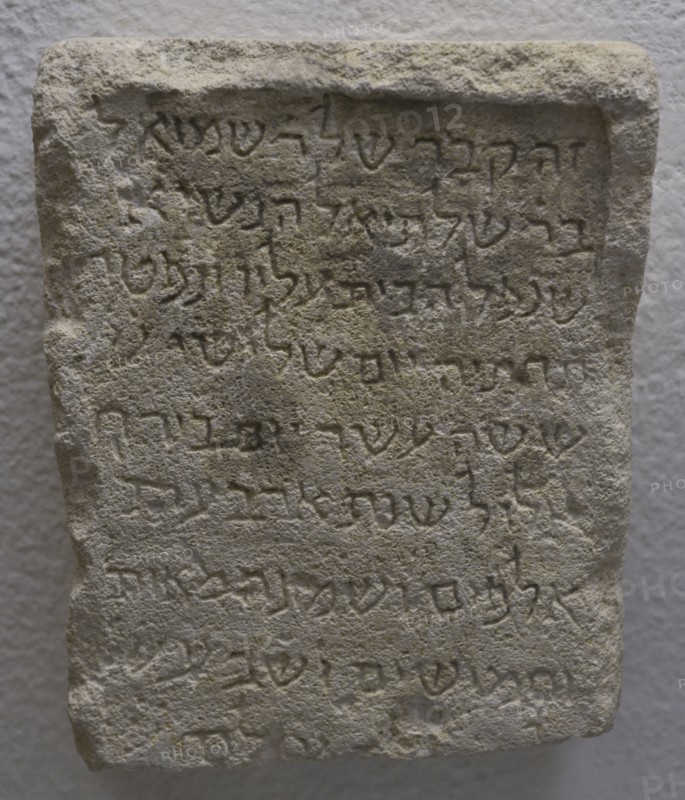 זה קבר של ר שמואל
בר שלתיאל הנשיא
שנפל הבית עליו ונפטר
תחתיה יום שלישי
ששה עשר יום בירח
אלול שנת ארבעת
אלפים ושמונה מאות
וחמשים ושבע
PHOTO12